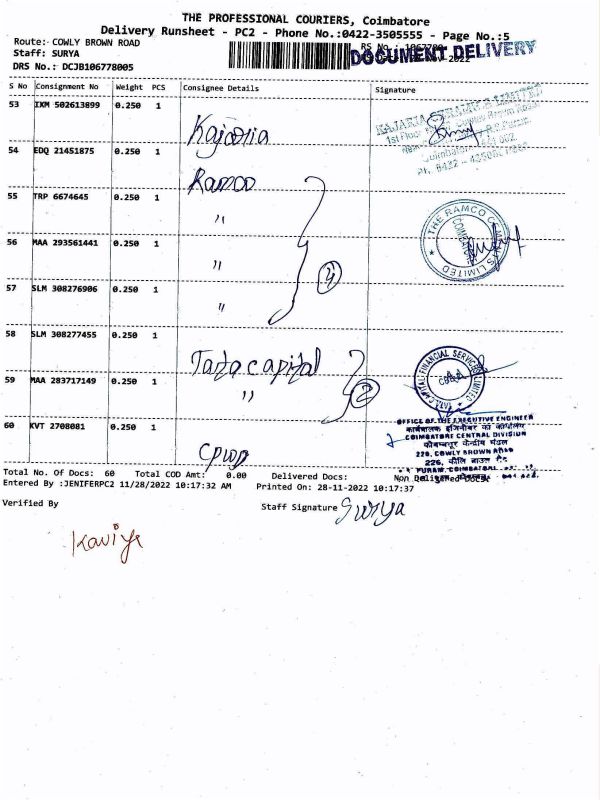 THE PROFESSIONAL COURIERS, Coimbatore
Delivery Runsheet - PC2 - Phone No.:0422-3505555 - Page No.:5
Route:- COWLY BROWN ROAD
Staff: SURYA
DOCUMENT DELIVERY
DRS No.: DCJB106778005
S No Consignment No Weight PCS Consignee Details Signature
53 IXM 502613899 0.250 1 Kajaria
54 EDQ 21451875 0.250 1 Ramco
55 TRP 6674645 0.250 1 "
56 MAA 293561441 0.250 1 "
57 SLM 308276906 0.250 1 "
4
THE RAMCO CEMENTS LIMITED
58 SLM 308277455 0.250 1 Tata capital
59 MAA 283717149 0.250 1 "
2
TATA CAPITAL FINANCIAL SERVICES LIMITED
60 KVT 2708081 0.250 1 CPWD
OFFICE OF THE EXECUTIVE ENGINEER
कार्यपालक इंजिनीयर का कार्यालय
COIMBATORE CENTRAL DIVISION
कोयम्बत्तूर केन्द्रीय मंडल
226, COWLY BROWN ROAD
Total No. Of Docs: 60 Total COD Amt: 0.00 Delivered Docs: Non Delivered Docs:
Entered By :JENIFERPC2 11/28/2022 10:17:32 AM Printed On: 28-11-2022 10:17:37
Verified By Staff Signature Surya
Kaviya